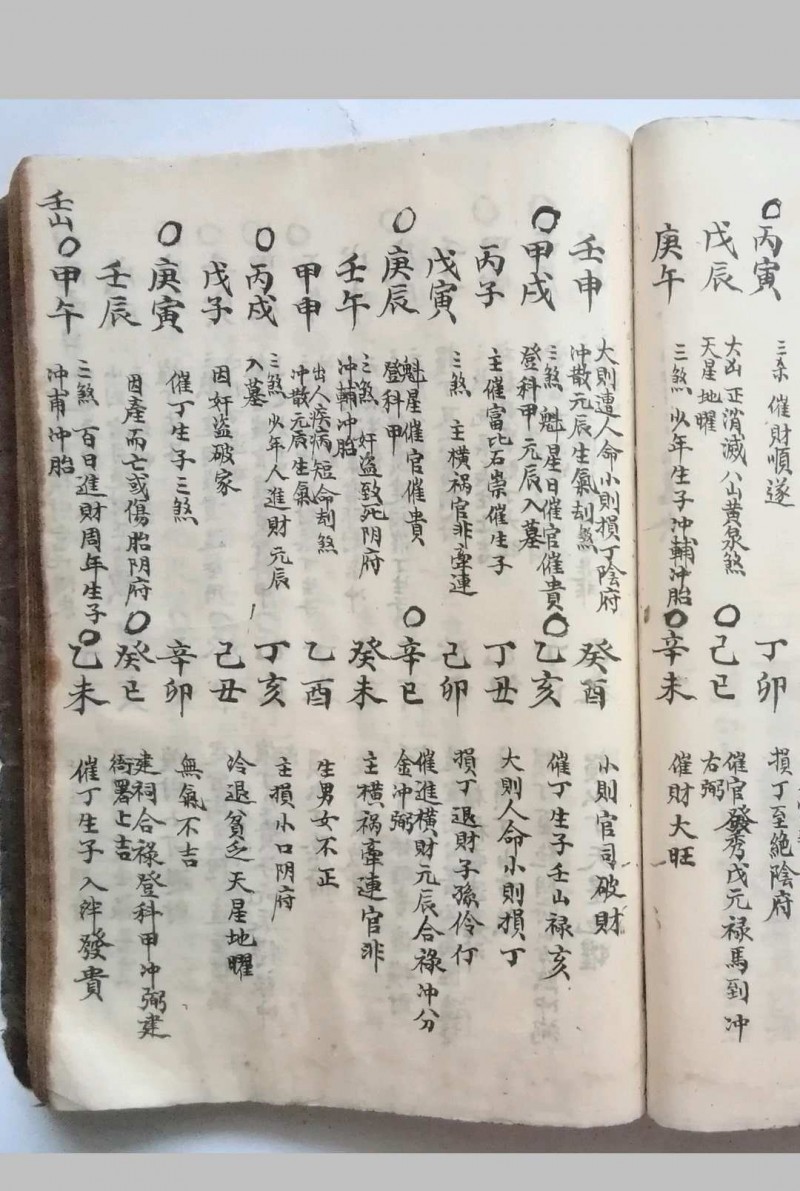 ○丙寅
三杀催財順遂
丁卯
損丁至絶陰府
戊辰
大凶正消滅八山黄泉煞
天星地曜
○己巳
催官發秀戊元禄馬到冲
右弼
庚午
三煞少年生子冲輔冲胎
○辛未
催財大旺
壬申
大則遭人命小則損丁陰府
冲散元辰生氣刦煞
癸酉
小則官司破財
○甲戌
三煞魁星日催官催貴
登科甲元辰入墓
○乙亥
催丁生子壬山禄亥
丙子
主催富比石崇催生子
丁丑
大則人命小則損丁
戊寅
三煞主横祸官非牽連
己卯
損丁退財子孫伶仃
○庚辰
魁星催官催貴
登科甲
○辛巳
催進横財元辰合禄冲分
金冲弼
壬午
三煞奸盗致死阴府
冲輔冲胎
癸未
主横祸牽連官非
甲申
出人疾病短命刦煞
冲散元辰生氣
乙酉
生男女不正
○丙戌
三煞少年人進財元辰
入墓
丁亥
主損小口阴府
戊子
因奸盗破家
己丑
冷退貧乏天星地曜
○庚寅
催丁生子三煞
辛卯
無氣不吉
壬辰
因產而亡或傷胎阴府
○癸巳
建祠合禄登科甲冲弼建
衙署上吉
壬山
○甲午
三煞百日進財周年生子
冲甫冲胎
○乙未
催丁生子入泮發貴